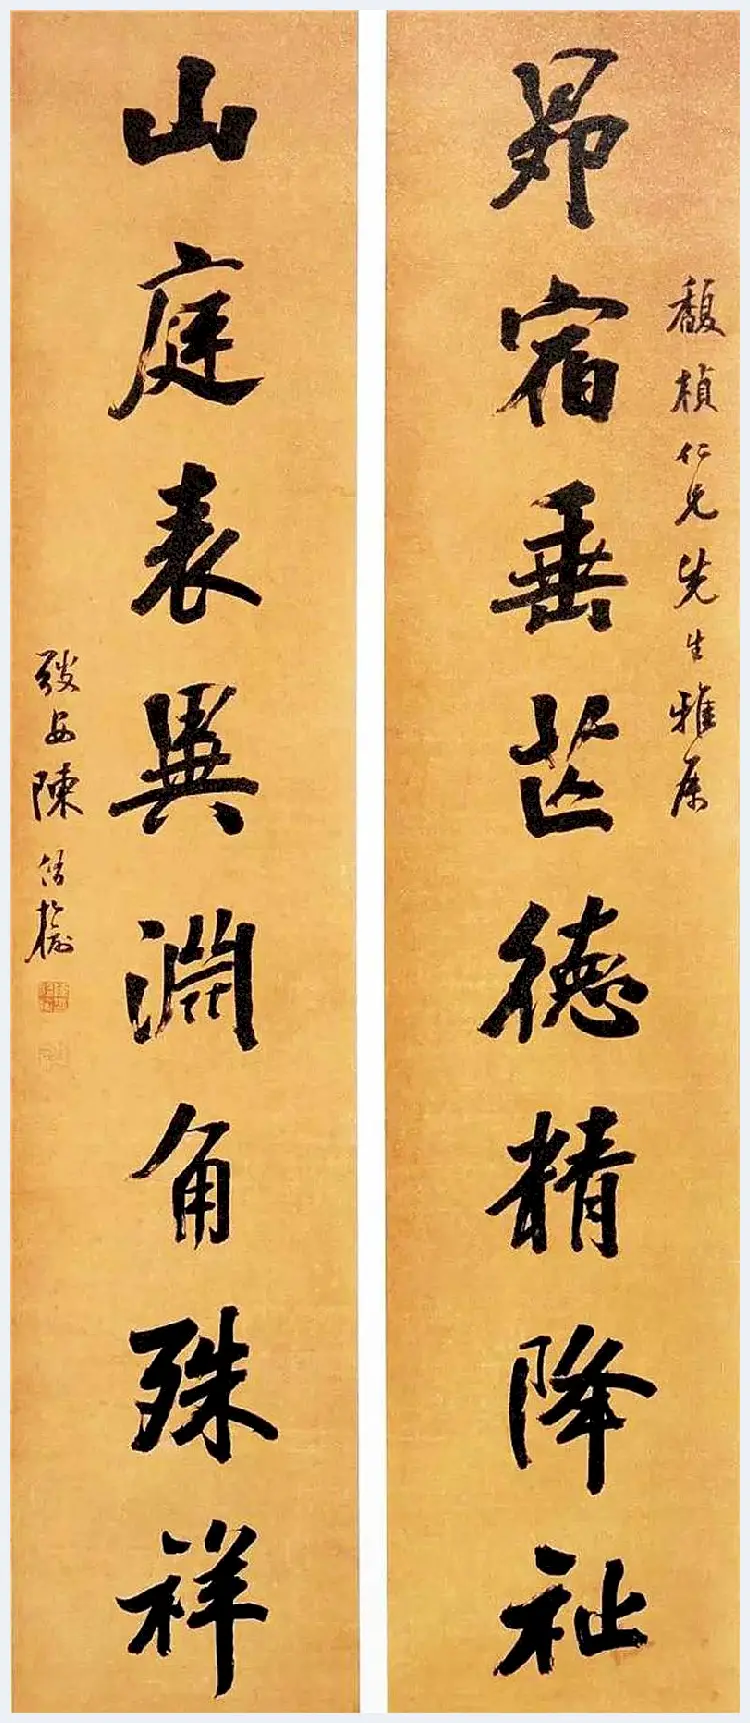 馥楨仁兄先生雅属
昴宿垂芒德精降祉
山庭表異淵角殊祥
弢安陳